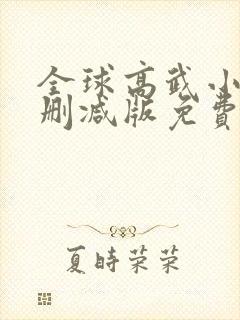 全球高武小
删减版免费
夏時荣荣